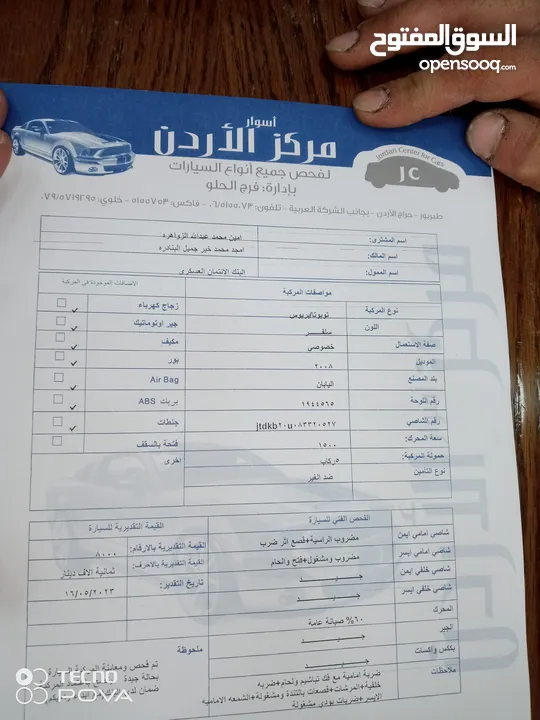 السوق المفتوح
opensooq.com
أسوار
مركز الأردن
لفحص جميع أنواع السيارات
بإدارة: فرج الحلو
Jordan Center for Cars
JC
طبربور - حراج الأردن - بجانب الشركة العربية - تلفون: ٠٦/٥١٥٥٠٧٣ - فاكس: ٥١٥٥٧٥٣ - خلوي: ٠٧٩/٥٧١٩٢٩٥
اسم المشتري: امين محمد عبدالله الزواهره
اسم المالك: امجد محمد خير جميل البنادره
اسم الممول: البنك الائتمان العسكري
مواصفات المركبة
الاضافات الموجودة في المركبة
نوع المركبة تويوتا/بريوس زجاج كهرباء
اللون سلفر جير اوتوماتيك
صفة الاستعمال خصوصي مكيف
الموديل ٢٠٠٨ بور
بلد المصنع اليابان Air Bag
رقم اللوحة ١٩٤٤٥٦٥ بريك ABS
رقم الشاصي jtdkb٢٠u٠٨٣٣٢٠٥٢٧ جنطات
سعة المحرك: ١٥٠٠ فتحة بالسقف
حمولة المركبة: ٥ركاب اخرى
نوع التأمين ضد الغير
الفحص الفني للسيارة القيمة التقديرية للسيارة
شاصي امامي ايمن مضروب الراسية+قصع اثر ضرب القيمة التقديرية بالارقام: ٨٠٠٠
شاصي امامي ايسر مضروب ومشغول+فتح ولحام القيمة التقديرية بالاحرف: ثمانية الاف دينار
شاصي خلفي ايمن جيد تاريخ التقدير: ١٦/٠٥/٢٠٢٣
شاصي خلفي ايسر جيد
المحرك ٦٠% صيانة عامة
الجير جيد
بكس واكسات جيد
ملاحظات ضربة امامية مع فك تباشيم ولحام+ضربه
خلفية+المرشات+قصعات بالتندة ومشغولة+الشمعه الاماميه
الايسر+ضربات بودي مشغولة
ملحوظة
تم فحص ومعاينة المركبة السيارة
بحالة جيدة
ضمان
TECNO
POVA